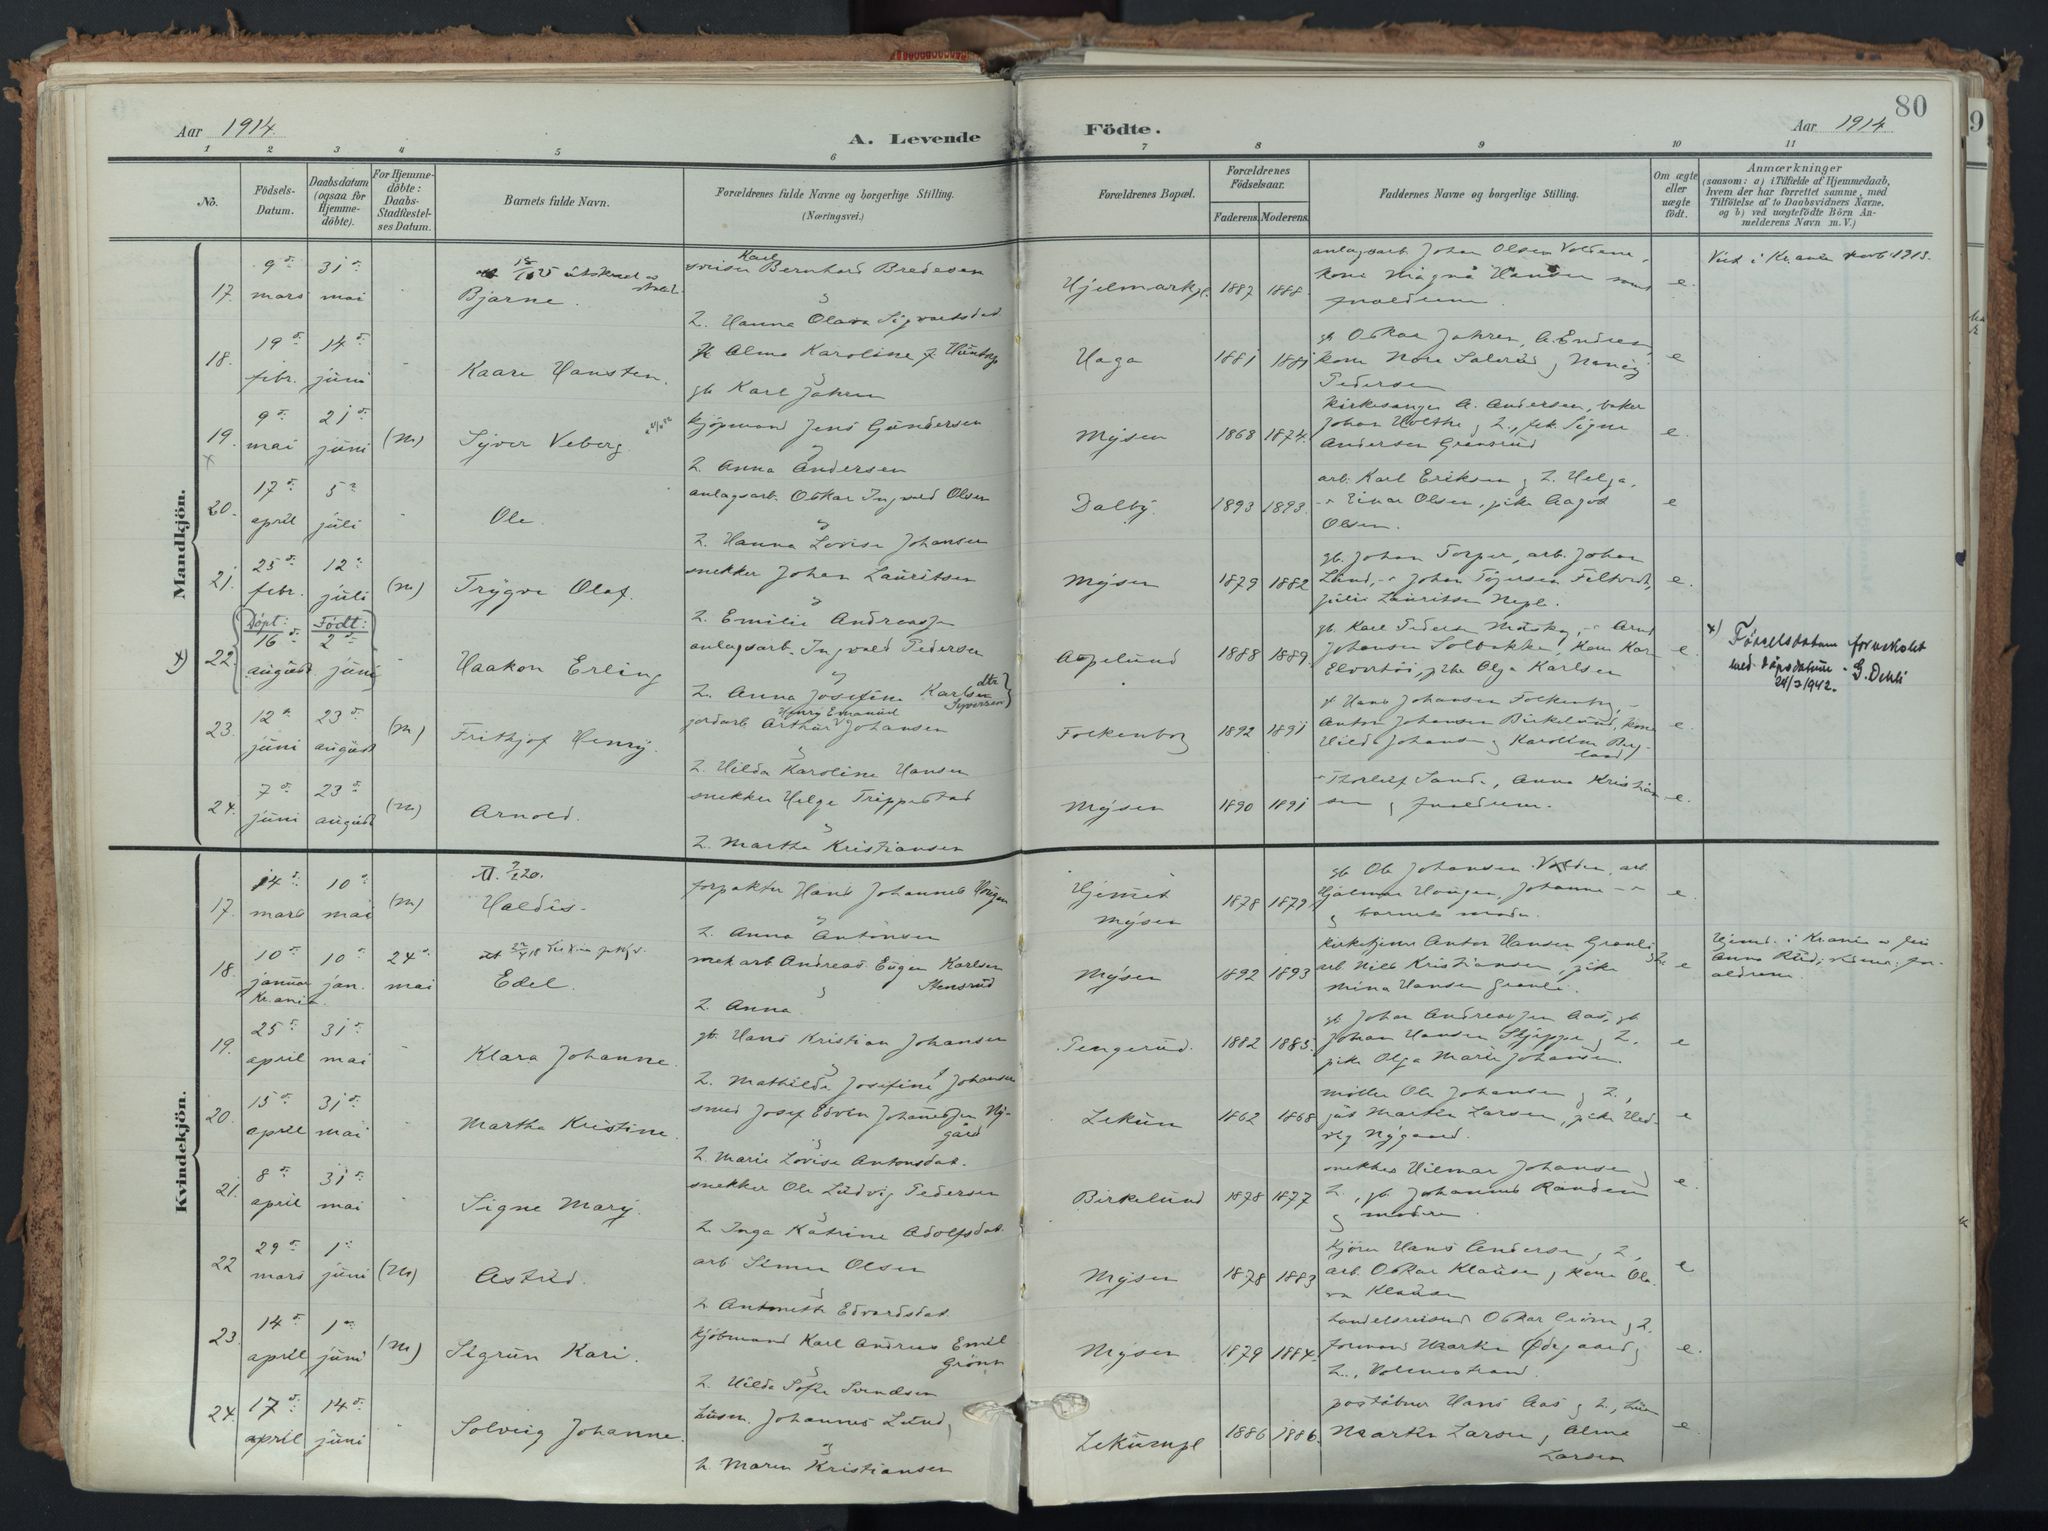 80
Aar 1914
A. Levende Födte.
Aar 1914
1 2 3 4 5 6 7 8 9 10 11
No.
Födsels-
Datum.
Daabsdatum
(ogsaa for
Hjemme-
döbte).
For Hjemme-
döbte:
Daabs-
Stadfæstel-
ses Datum.
Barnets fulde Navn.
Forældrenes fulde Navne og borgerlige Stilling.
(Næringsvei.)
Forældrenes Bopæl.
Forældrenes
Födselsaar.
Faderens. Moderens.
Faddernes Navne og borgerlige Stilling.
Om ægte
eller
uægte
födt.
Anmærkninger
(saasom: a) i Tilfælde af Hjemmedaab,
hvem der har forrettet samme, med
Tilföielse af to Daabsvidners Navne,
og b) ved uægtefödte Börn An-
melderens Navn m. V.)
Mandkjön.
17. 9 mars 31 mai
Bjarne.
Karl
Bernhard Bredesen
L. Hanna Olava Sigvartsdat.
Hjelmarkpl. 1887 1888
anlagsarb. Johan Olsen Voldene,
kone Magna Hansen
e.
Viet i Kr.ania 1913.
18. 19 febr. 14 juni
Kaare Hansten.
Alma Karoline
gb Karl Jahren
Haga 1881 1881
Oskar Jahren, A. Endresen,
kone Nora Salerud
Pedersen
e
19. 9 mai 21 juni (m)
Syver Veberg.
kjøpmand Jens Gundersen
L. Anna Andersen
Mysen 1868 1874.
kirkesanger A. Andersen, baker
Johan Holthe g L., frk. Signe
Andersen Grensrud
e.
20. 17 april 5 juli
Ole.
anlagsarb. Oskar Ingvald Olsen
L. Hanna Lovise Johansen
Dalby. 1893 1893.
arb. Karl Eriksen g L. Helga,
Einar Olsen, pike Aagot
Olsen.
e
21. 25 febr. 12 juli (m)
Trygve Olaf.
snekker Johan Lauritsen
L. Emilie Andreassen
Mysen 1879 1882
gb. Johan Torper, arb. Johan
Lund, Johan
Julie Lauritsen
e.
Døpt: Født:
x) 22. 16 august 2 juni
Haakon Erling
anlagsarb. Ingvald Pedersen
L. Anna Josefine Karlsen
dtr
Syversen
Aspelund 1888 1889.
gb. Karl Pedersen
Johansen Solbakke, kone
pike Olga Karlsen
e.
x) Fødselsdatum forvekslet
med døpsdatum - G. Dehli
24/3 1942.
23. 12 juni 23 august (m)
Frithjof Henry.
Henry Emanuel
jordarb. Arthur Johansen
L. Hilda Karoline Hansen
Folkenborg 1892 1891
Hans Johansen Folkenborg,
Anton Johansen Birkelund, kone
Hilda Johansen g Karoline
e.
24. 7 juni 23 august (m)
Arnold.
snekker Helge Trippestad
L. Martha Kristiansen
Mysen 1890 1891
Thorleif Sande, Anna Kristian-
sen g foreldrene.
e.
Kvindekjön.
17. 14 mars 10 mai (m)
Haldis.
forpakter Hans Johannes Haugen
L. Anna Antonsen
Mysen 1878 1879.
gb Ole Johansen Volden, arb
Hjalmar Haugen, Johanne
g barnets moder
e
18. 10 januar 10 jan. 24 mai
Kr.ania
Edel.
mek arb Andreas Eugen Karlsen
Stensrud
L. Anna
Mysen 1892 1893
kirketjener Anton Hansen Granli
arb Nils Kristiansen, pike
Mina Hansen Granli.
e
Hjemd. i Kr.ania
19. 25 april 31 mai
Klara Johanne.
gb. Hans Kristian Johansen
L. Mathilde Josefine Johansen
Tengerud. 1882 1885.
gb. Johan Andreassen Aas, gb
Johan Hansen Skjeppe g L.
pike Olga Marie Johansen.
e
20. 15 april 31 mai
Martha Kristine.
smed Josef Edvin Johannessen Ny-
gård
L. Marie Lovise Antonsdat.
Lekum 1862 1868
møller Ole Johansen g L.,
Marthe Larsen, pike Hed-
vig Nygaard.
e
21. 8 april 31 mai
Signe Mary.
snekker Ole Ludvig Pedersen
L. Inga Katrine Adolfsdat.
Birkelund 1878 1877
snekker Hilmar Johansen g
L., gb. Johannes Randem
g moderen
e.
22 29 mars 1 juni (m)
Astrid.
arb Simen Olsen
L. Antonette Edvardsdat.
Mysen 1878 1883
kjører Hans Andersen g L,
arb. Oskar Klausen g kone Ola-
va Klausen
e
23. 14 april 1 juni (m)
Sigrun Kari.
kjøbmand Karl Andreas Emil
Grønn
L. Hilda Sofie Svendsen
Mysen 1879 1884.
handelsreisend Oskar Grønn g L.
formand Martin Ødegaard g
L., Holmestrand.
e.
24. 17 april 14 juni
Solveig Johanne.
husm. Johannes Lund,
L. Maren Kristiansen
Lekumpl 1886 1886.
postaabner Hans Aas g L.,
Marthe Larsen, Alma
Larsen
e